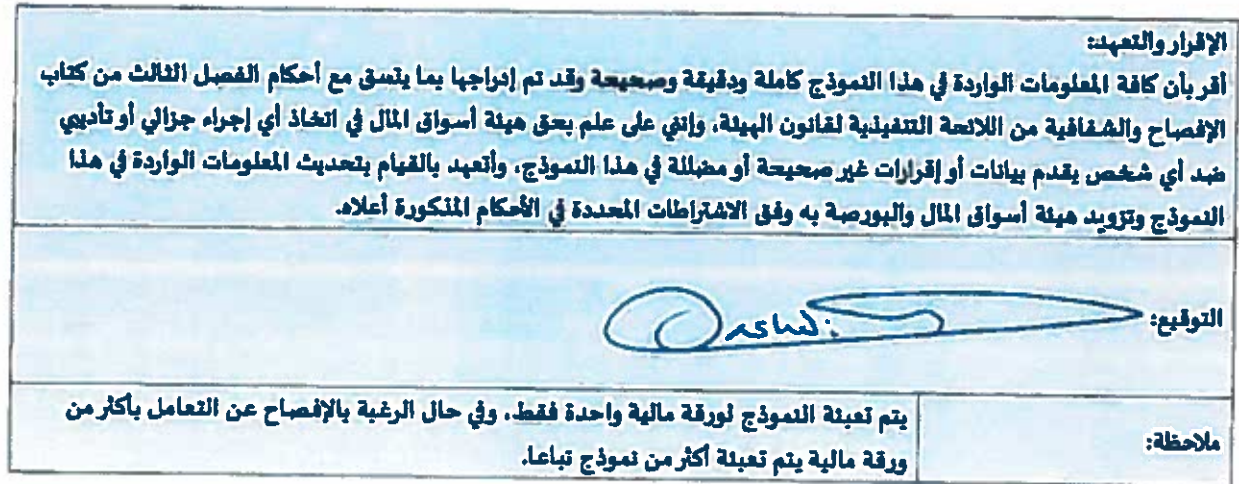 الإقرار والتعهد:
أقر بأن كافة المعلومات الواردة في هذا النموذج كاملة ودقيقة وصحيحة وقد تم إدراجها بما يتسق مع أحكام الفصل الثالث من كتاب
الإفصاح والشفافية من اللائحة التنفيذية لقانون الهيئة، وإنني على علم بحق هيئة أسواق المال في اتخاذ أي إجراء جزائي أو تأديبي
ضد أي شخص يقدم بيانات أو إقرارات غير صحيحة أو مضللة في هذا النموذج، وأتعهد بالقيام بتحديث المعلومات الواردة في هذا
النموذج وتزويد هيئة أسواق المال والبورصة به وفق الاشتراطات المحددة في الأحكام المذكورة أعلاه.
التوقيع:
ملاحظة:
يتم تعبئة النموذج لورقة مالية واحدة فقط، وفي حال الرغبة بالإفصاح عن التعامل بأكثر من
ورقة مالية يتم تعبئة أكثر من نموذج تباعا.